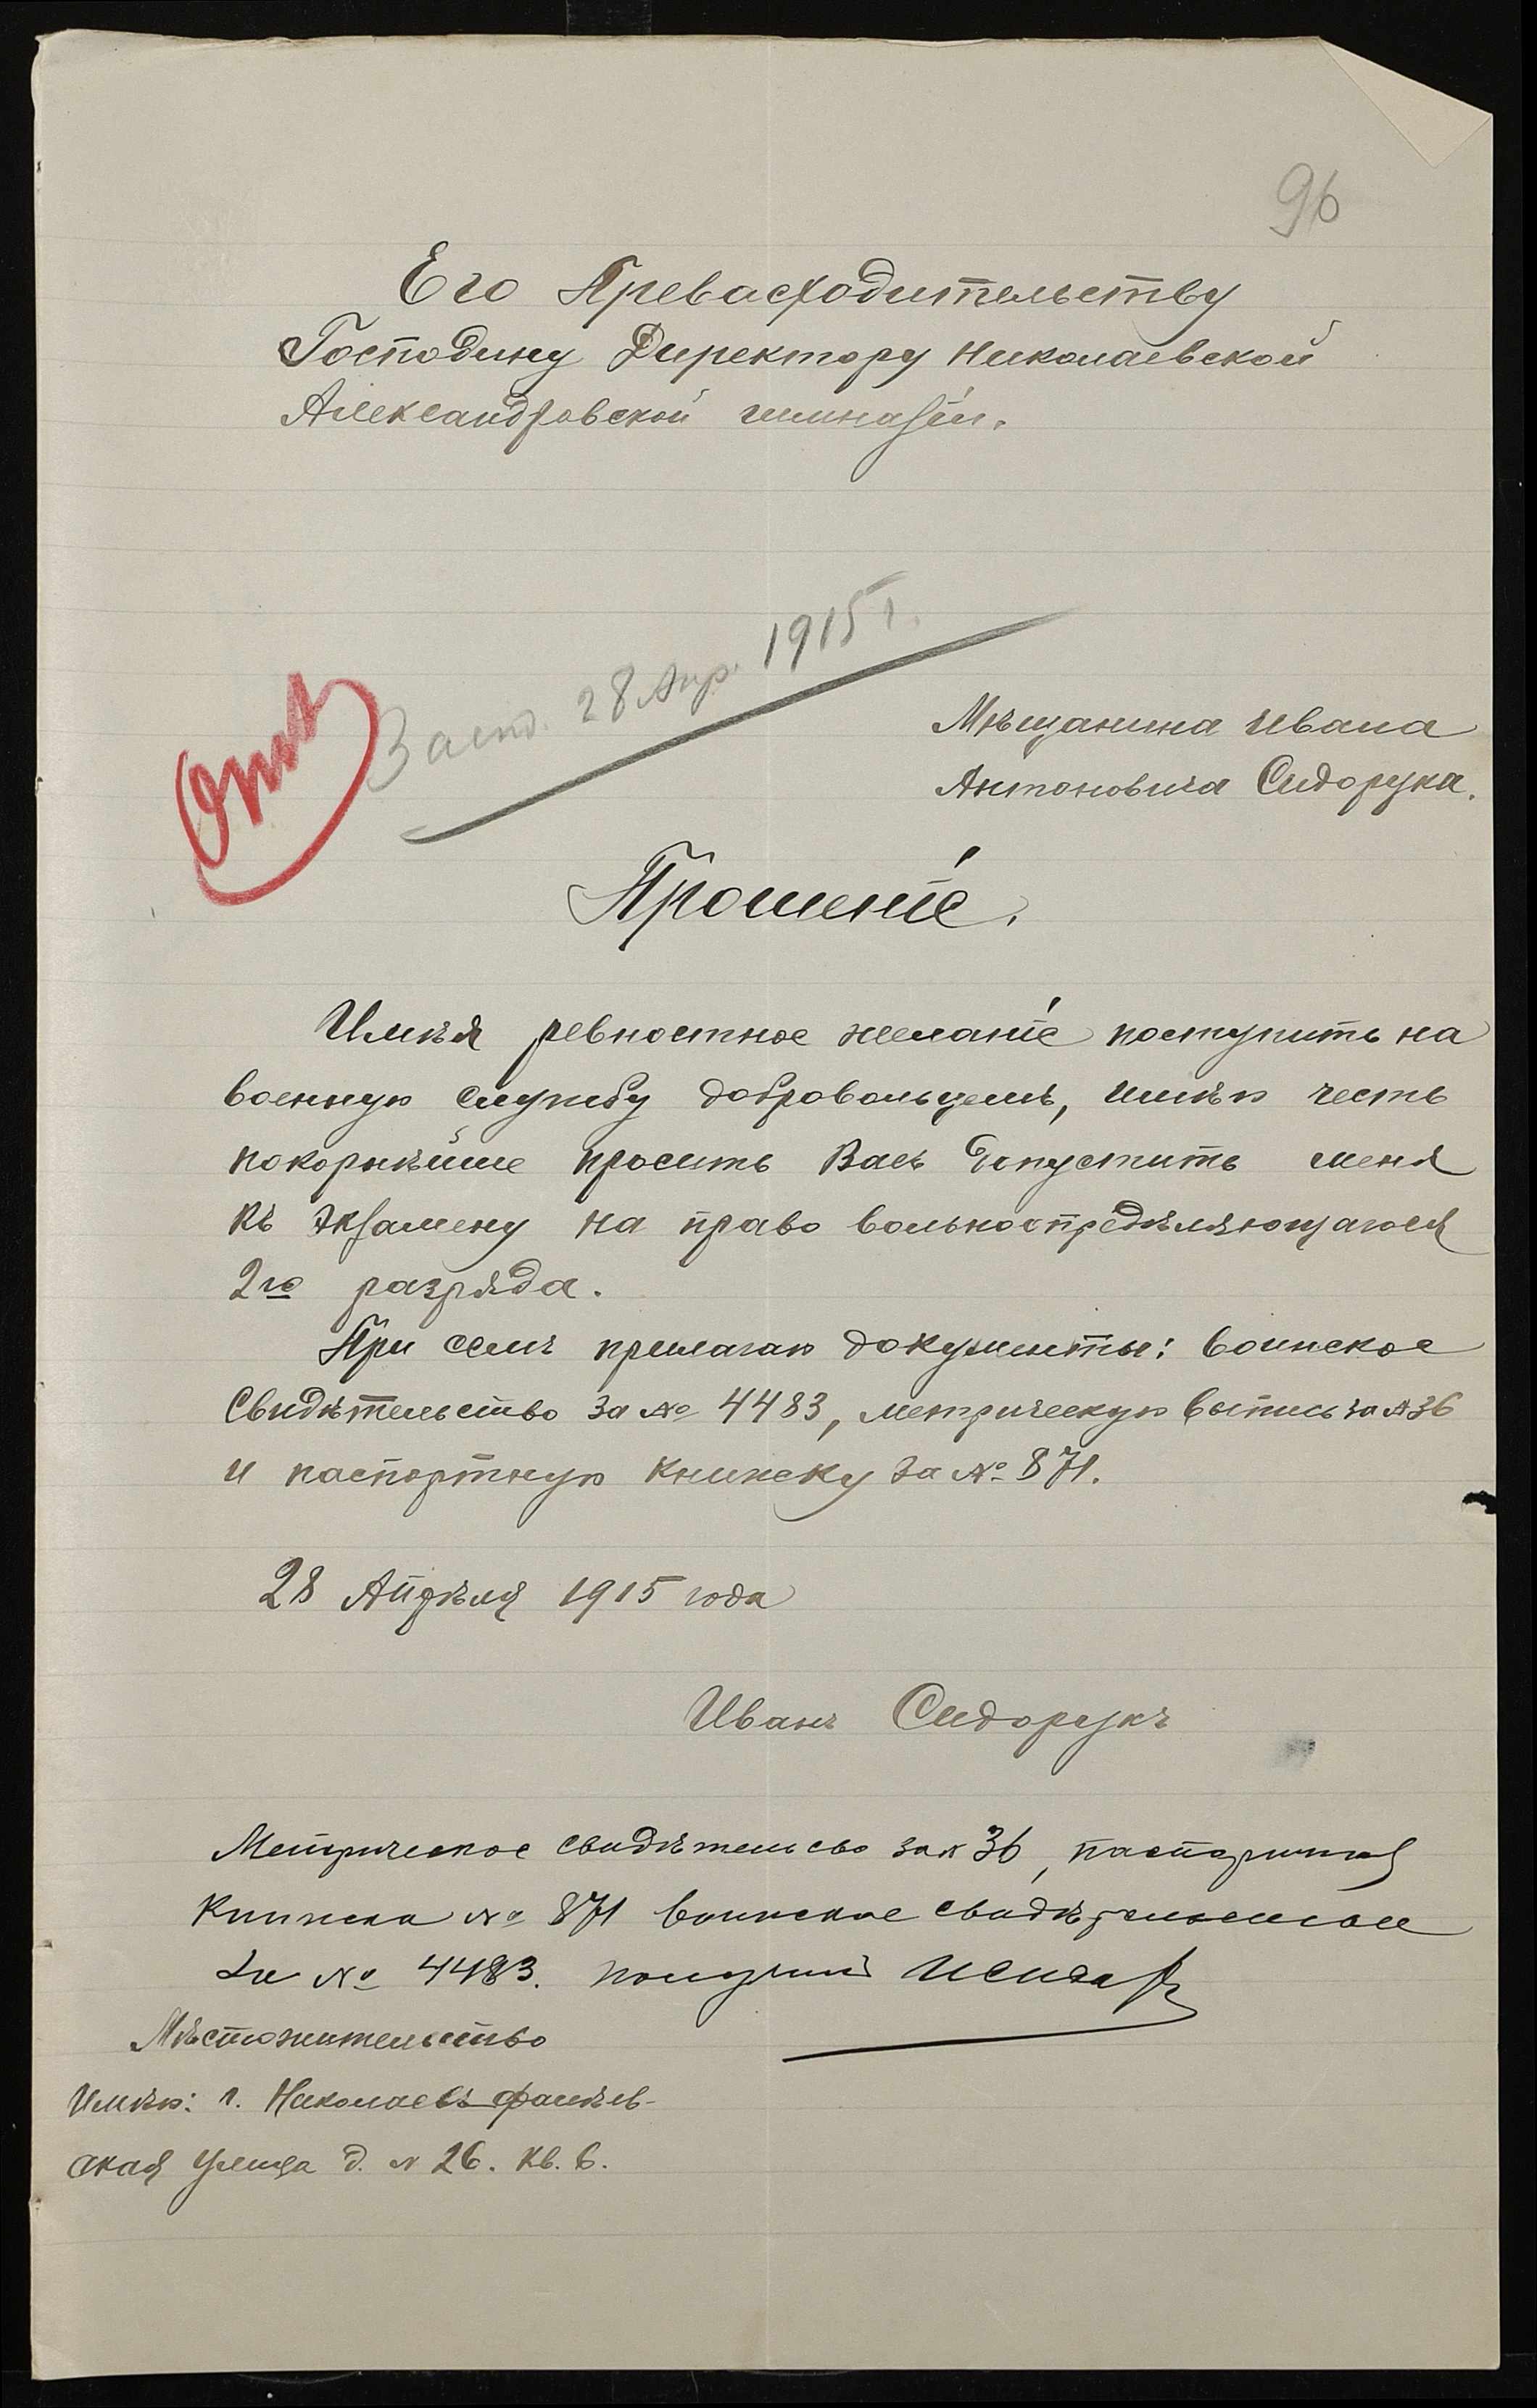 96
Его Превасходительству
Господину Директору Николаевской
Александровской гимназіи.
28 Апр. 1915 г.
Мѣщанина Ивана
Антоновича Сидорука.
Прошеніе.
Имѣя ревностное желаніе поступить на
военную службу добровольцемъ, имѣю честь
покорнѣйше просить Васъ допустить меня
къ экзамену на право вольноопредѣляющагося
2го разряда.
При семъ прилагаю документы: воинское
свидѣтельство за № 4483, метрическую выпись за № 36
и паспортную книжку за № 871.
28 Апрѣля 1915 года
Иванъ Сидорукъ
Метрическое свидѣтельсво за № 36, паспортная
книжка № 871 воинское свидѣтельство
за № 4483. получилъ
Мѣстожительство
Имѣю: г. Николаевъ Фалѣев-
ская улица д. № 26. кв. 6.